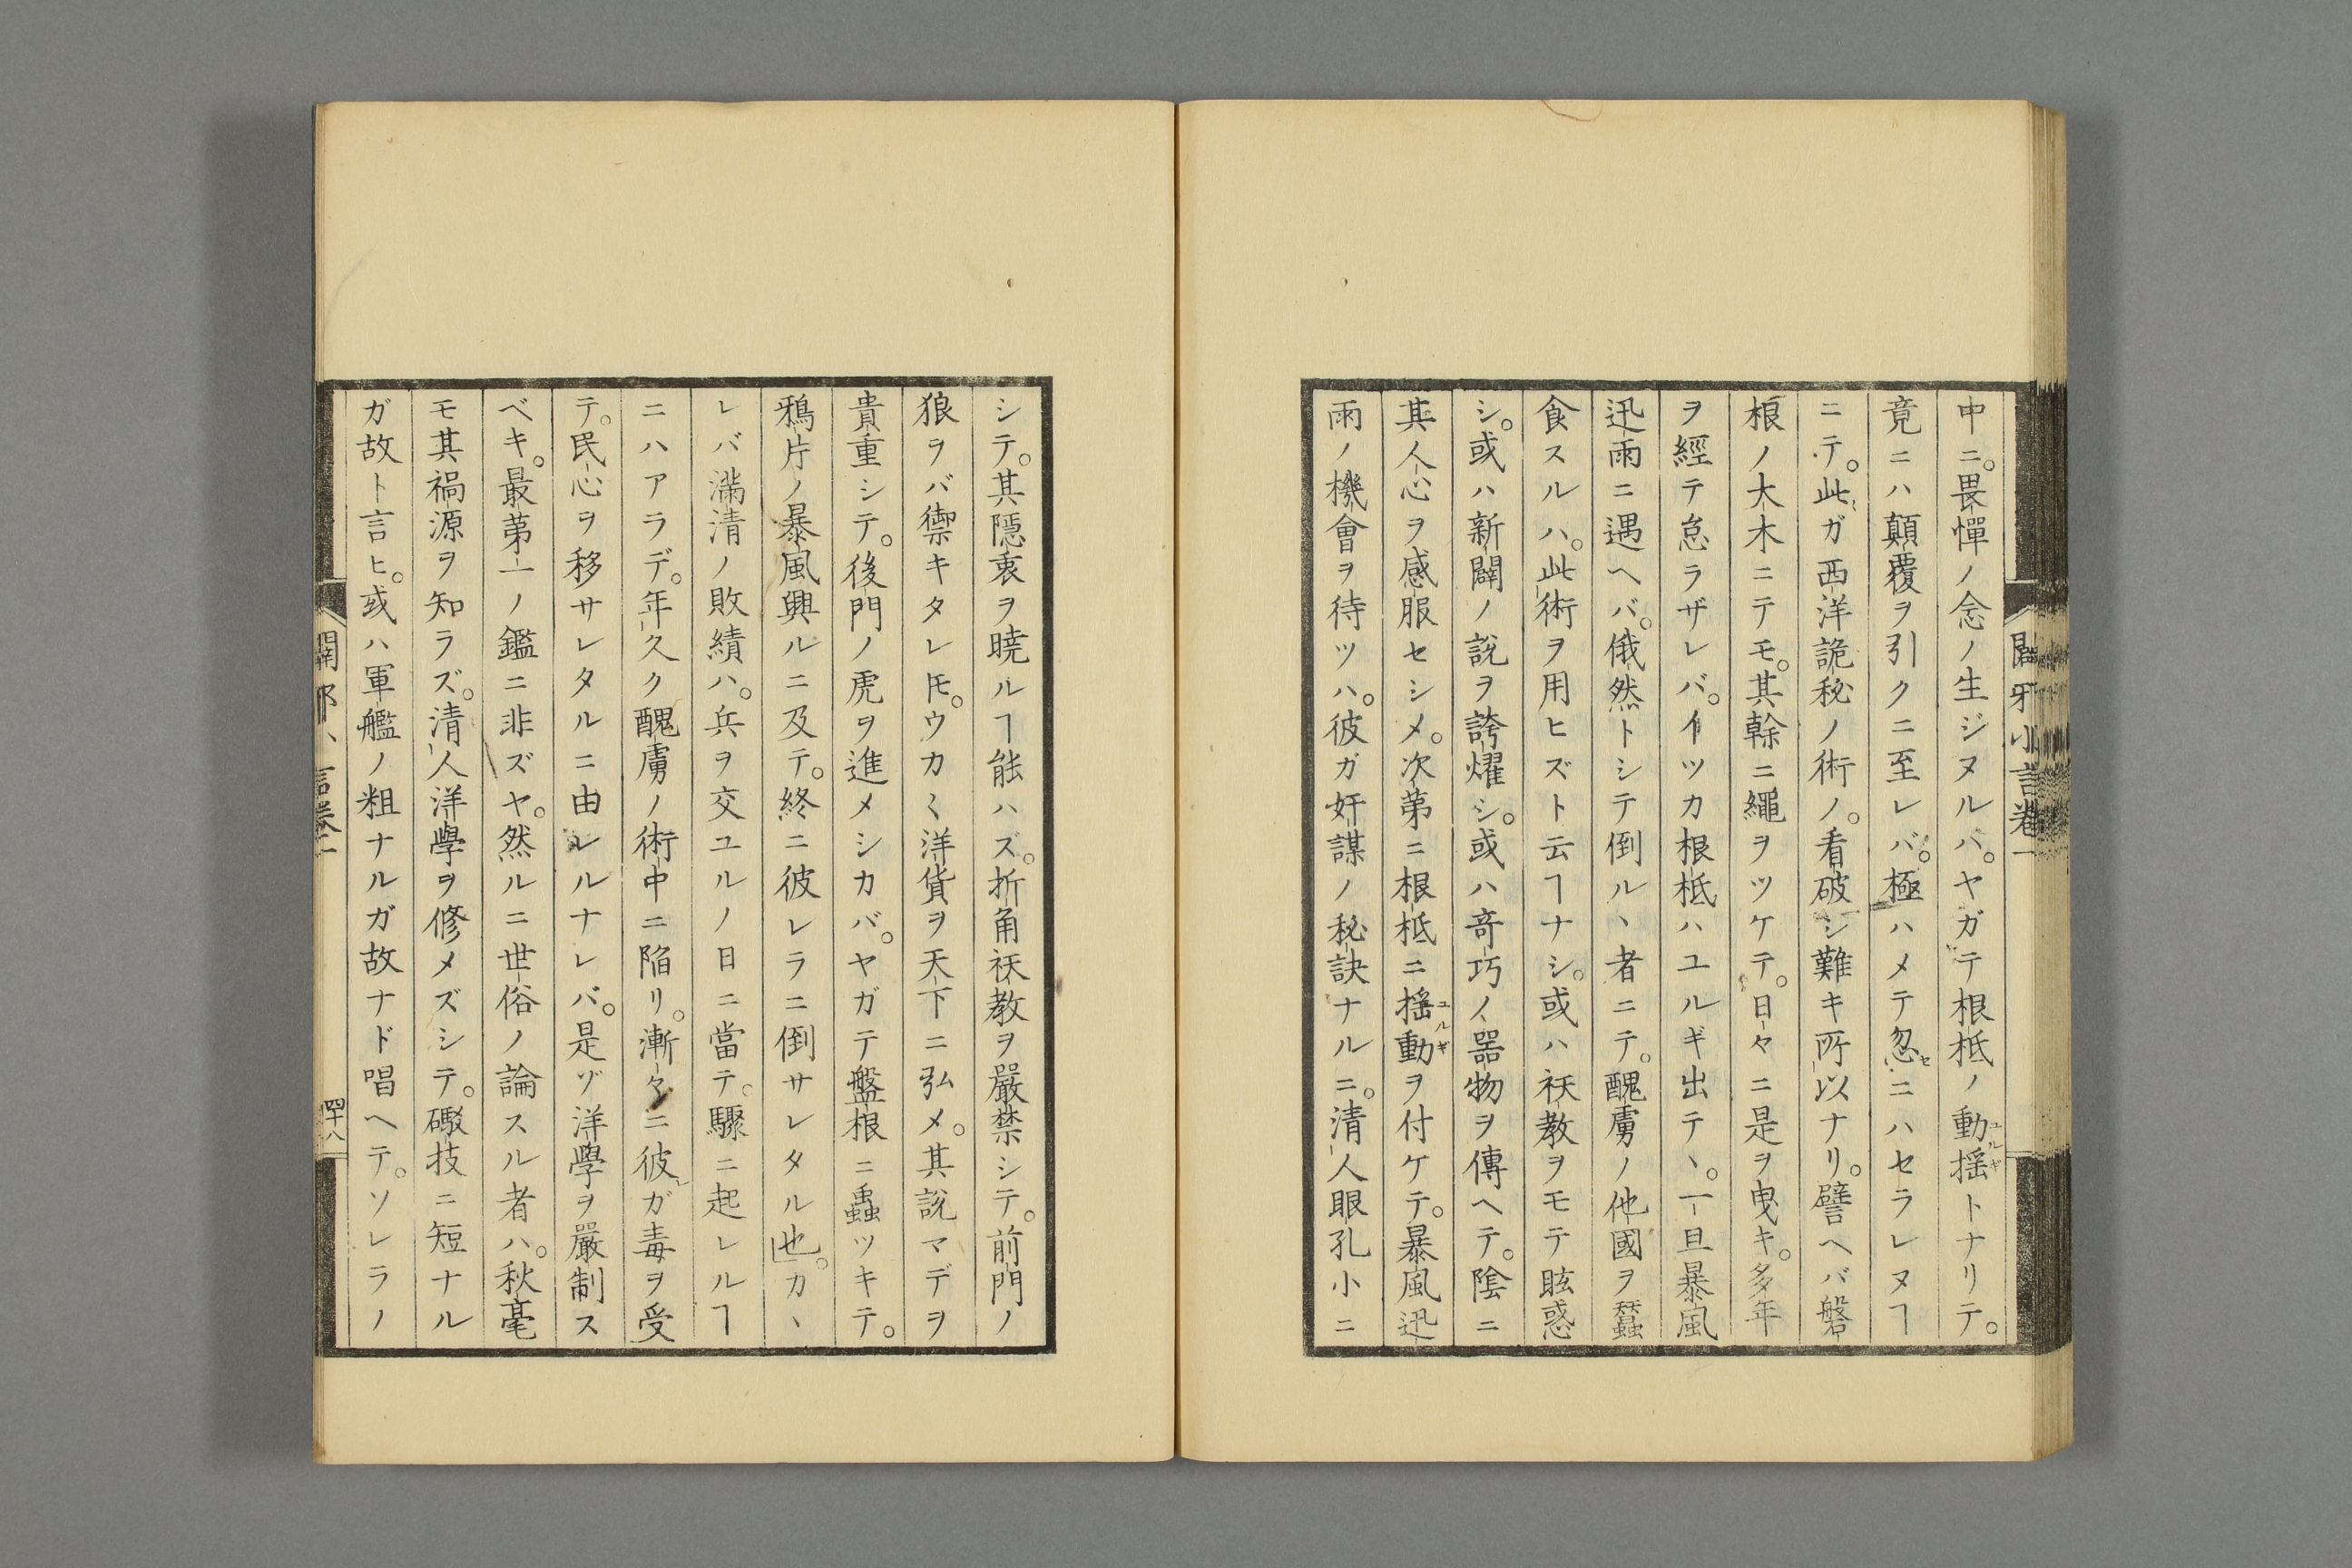 中ニ。畏憚ノ念ノ生ジヌルハ。ヤガテ根柢ノ動揺トナリテ。
竟ニハ顛覆ヲ引クニ至レバ。極ハメテ忽ニハセラレヌヿ
ニテ。此ガ西洋詭秘ノ術ノ。看破シ難キ所以ナリ。譬ヘバ磐
根ノ大木ニテモ。其幹ニ繩ヲツケテ。日々ニ是ヲ曳キ。多年
ヲ經テ怠ラザレバ。イツカ根柢ハユルギ出テヽ。一旦暴風
迅雨ニ遇ヘバ。俄然トシテ倒ルヽ者ニテ。醜虜ノ他國ヲ蠶
食スルハ。此術ヲ用ヒズト云ヿナシ。或ハ祅教ヲモテ眩惑
シ。或ハ新闢ノ說ヲ誇燿シ。或ハ竒巧ノ器物ヲ傳ヘテ。陰ニ
其人心ヲ感服セシメ。次第ニ根柢ニ揺動ヲ付ケテ。暴風迅
雨ノ機會ヲ待ツハ。彼ガ奸謀ノ秘訣ナルニ。清人眼孔小ニ
シテ。其隱衷ヲ曉ルヿ能ハズ。折角祅教ヲ嚴禁シテ。前門ノ
狼ヲバ禦キタレ𪜈。ウカ〱洋貨ヲ天下ニ弘メ。其說マデヲ
貴重シテ。後門ノ虎ヲ進メシカバ。ヤガテ盤根ニ蟲ツキテ。
鴉片ノ暴風興ルニ及テ。終ニ彼レラニ倒サレタル也。カヽ
レバ滿清ノ敗績ハ。兵ヲ交ユルノ日ニ當テ。驟ニ起レルヿ
ニハアラデ。年久ク醜虜ノ術中ニ陥リ。漸々ニ彼ガ毒ヲ受
テ。民心ヲ移サレタルニ由レルナレバ。是ゾ洋學ヲ嚴制ス
ベキ。最第一ノ鑑ニ非ズヤ。然ルニ世俗ノ論スル者ハ。秋毫
モ其禍源ヲ知ラズ。清人洋學ヲ修メズシテ。礮技ニ短ナル
ガ故ト言ヒ。或ハ軍艦ノ粗ナルガ故ナド唱ヘテ。ソレラノ
四十八